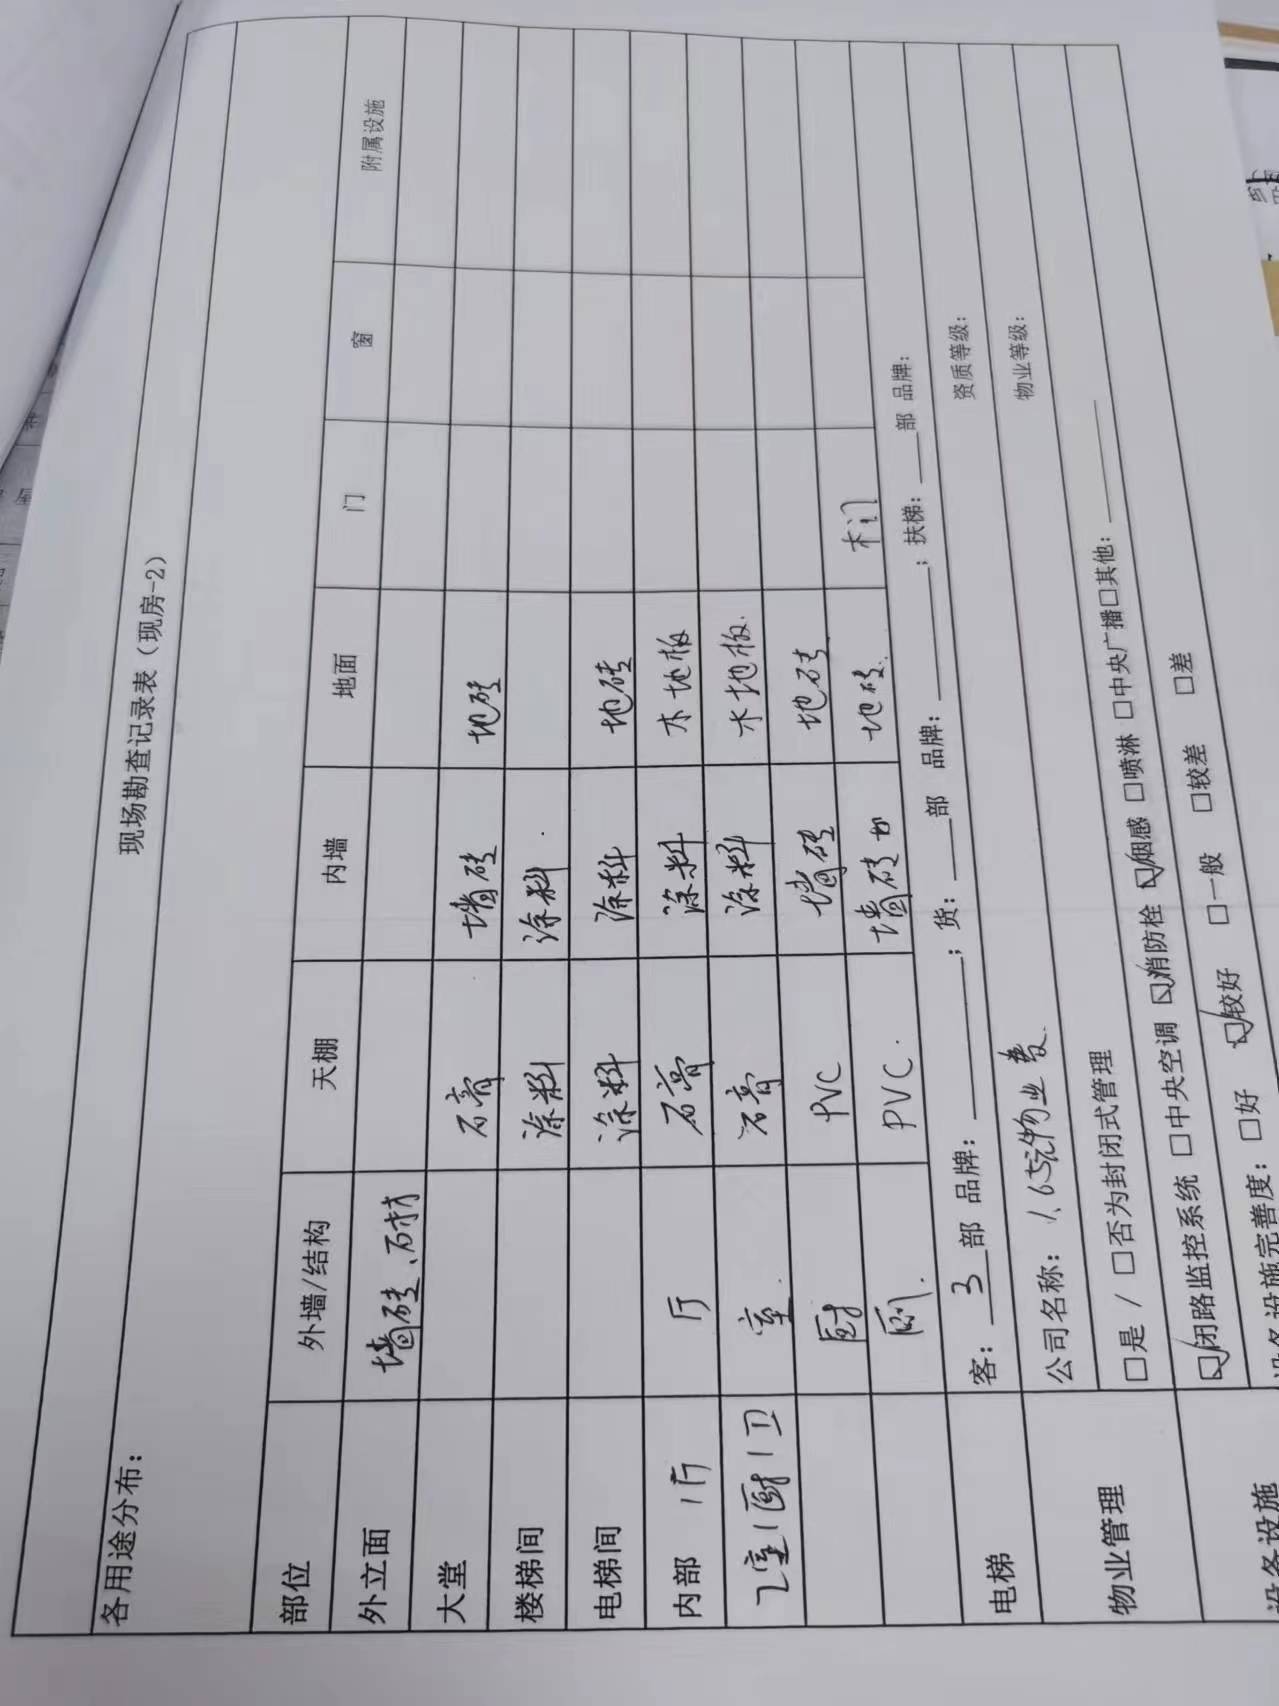 现场勘查记录表（现房-2）
各用途分布：
部位 外墙/结构 天棚 内墙 地面 门 窗 附属设施
外立面 墙砖、石材
大堂 石膏 墙砖 地砖
楼梯间 涂料 涂料
电梯间 涂料 涂料 地砖
内部 1厅 厅 石膏 涂料 木地板
2室1厨1卫 室. 石膏 涂料 木地板.
厨 PVC 墙砖 地砖
厕. PVC. 墙砖 地砖. 木门
电梯 客：3部 品牌：；货：部 品牌：；扶梯：部 品牌：
物业管理 公司名称：1.65元物业费. 资质等级：
□是 / □否为封闭式管理 物业等级：
设备设施 ☑闭路监控系统 □中央空调 ☑消防栓 ☑烟感 □喷淋 □中央广播□其他：
设备设施完善度：□好 ☑较好 □一般 □较差 □差